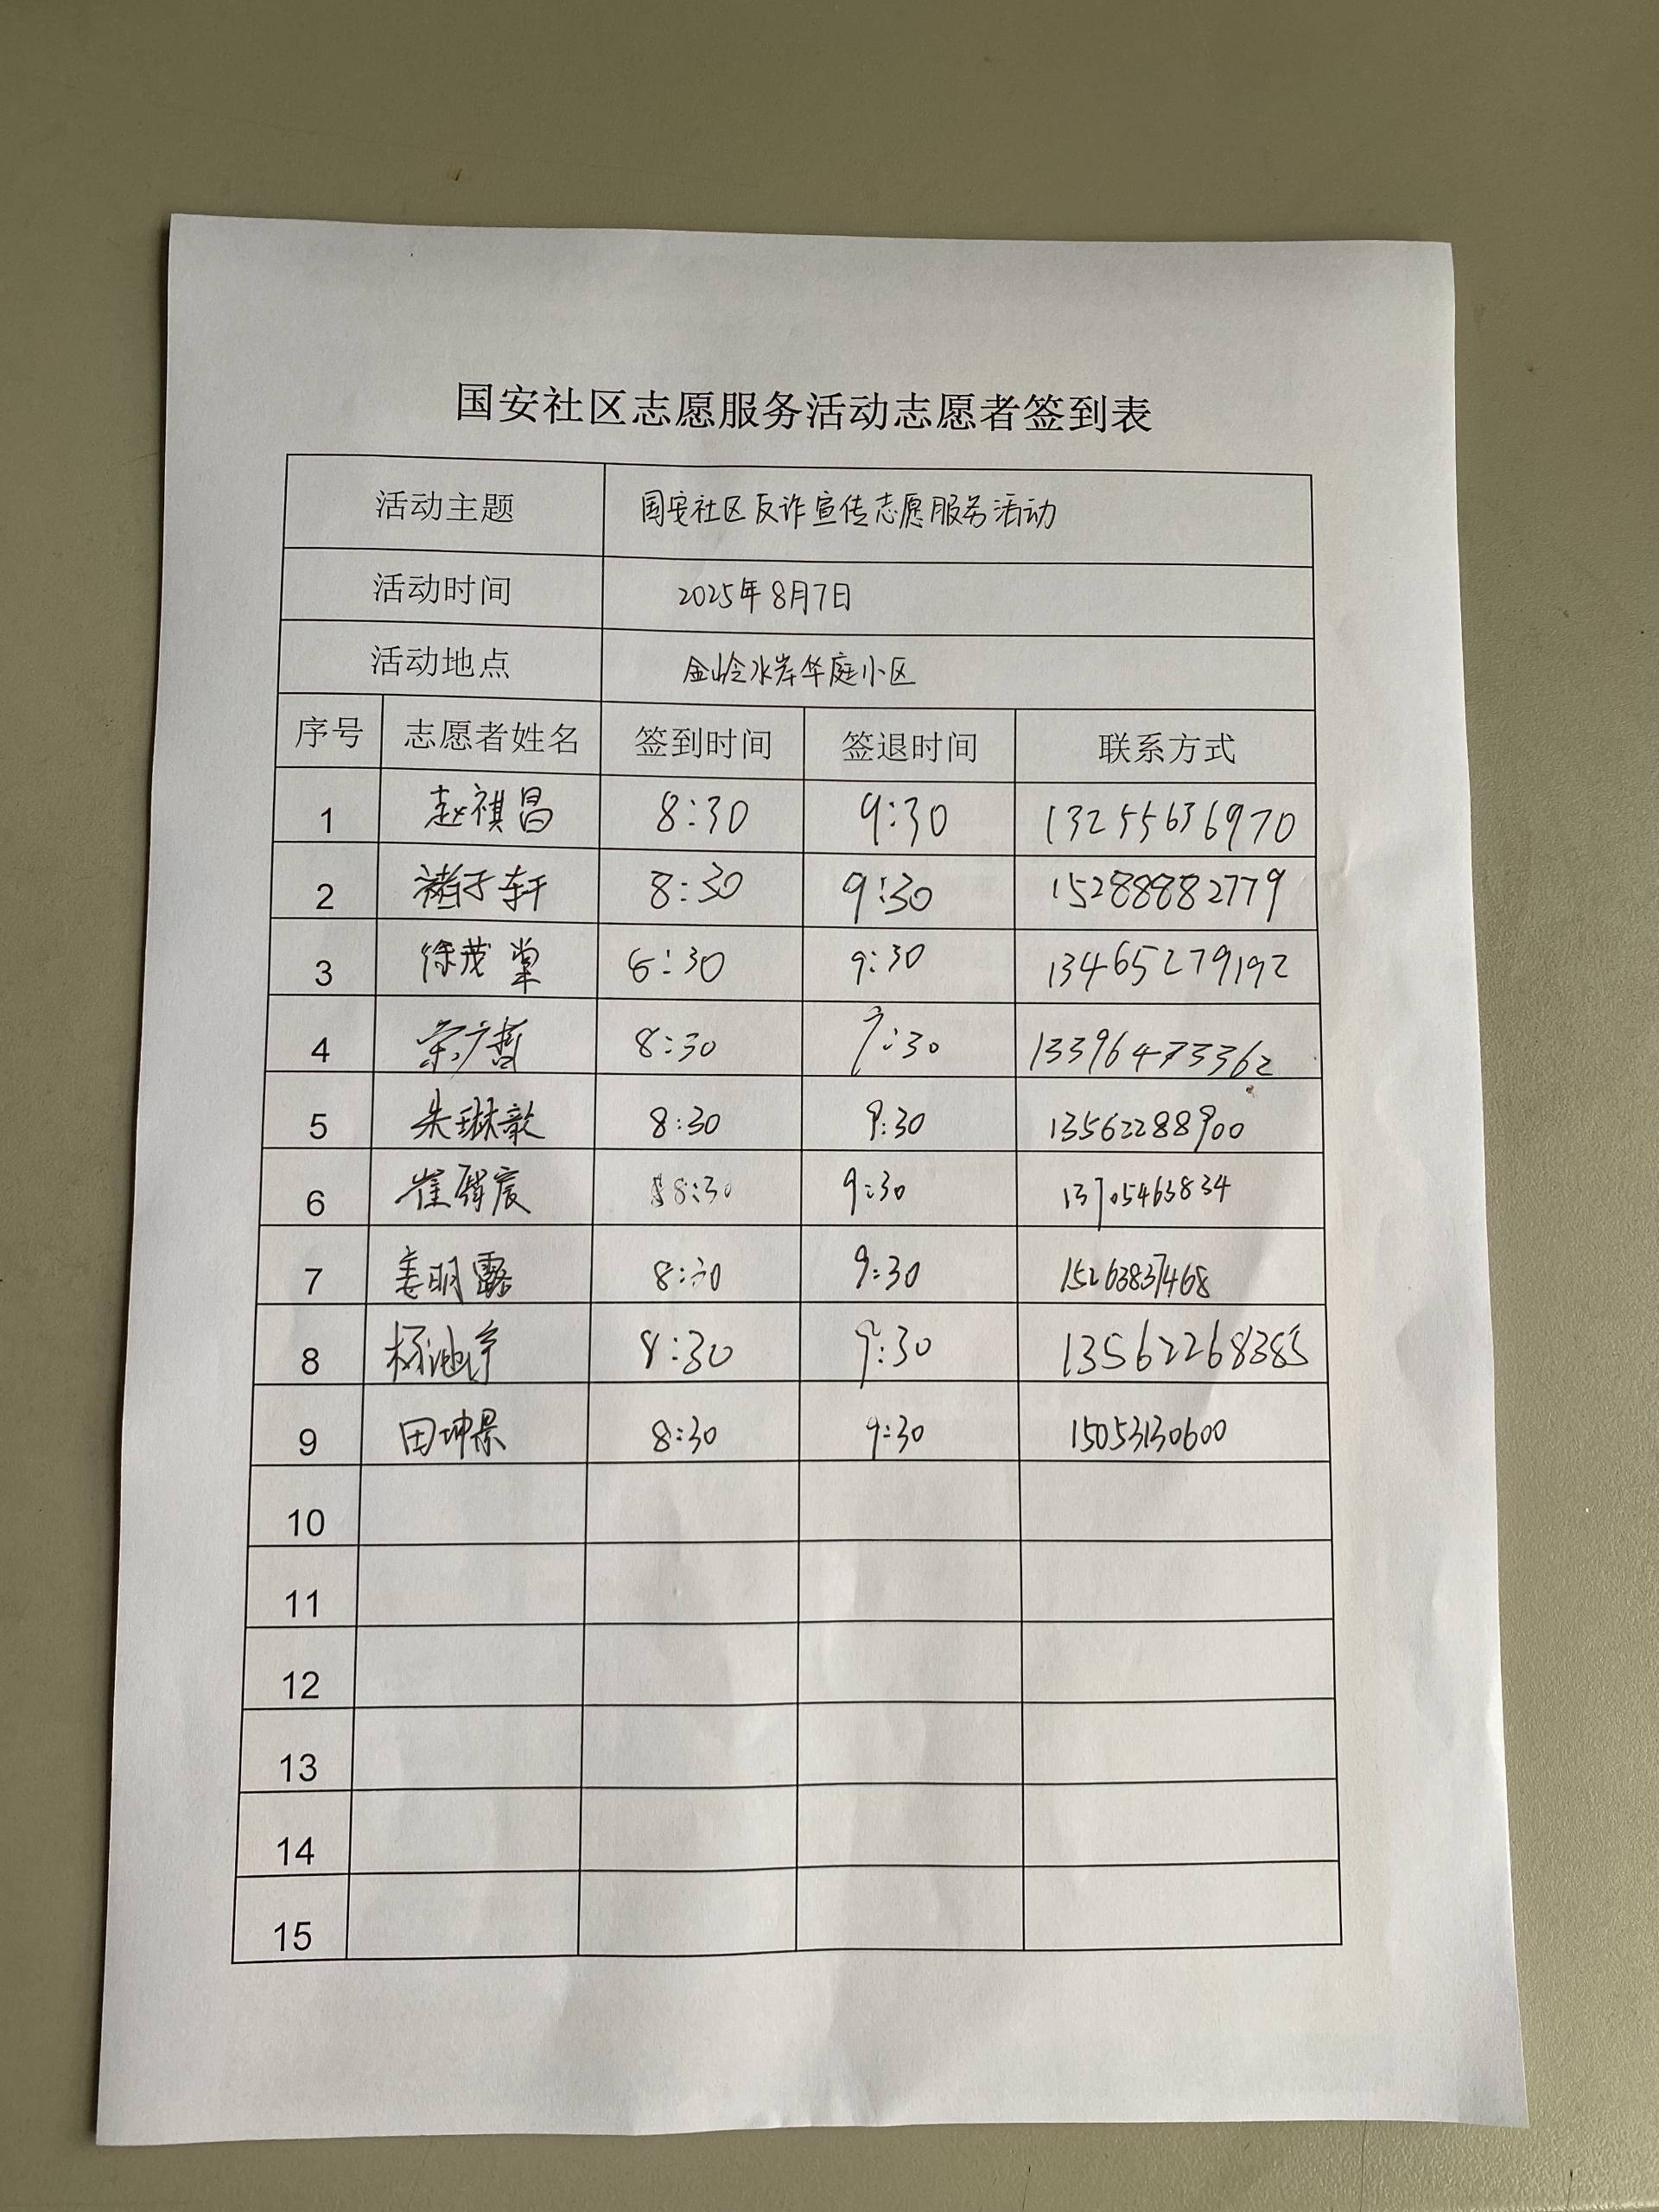 国安社区志愿服务活动志愿者签到表
活动主题 国安社区反诈宣传志愿服务活动
活动时间 2025年8月7日
活动地点 金岭水岸华庭小区
序号 志愿者姓名 签到时间 签退时间 联系方式
1 赵祺昌 8:30 9:30 13255636970
2 褚子轩 8:30 9:30 15288882779
3 徐茂堂 8:30 9:30 13465279192
4 荣广哲 8:30 9:30 13396473362
5 朱琳歆 8:30 9:30 13562288900
6 崔 宸 8:30 9:30 13705463834
7 姜明露 8:30 9:30 15263837468
8 杨 8:30 9:30 13562268385
9 田坤景 8:30 9:30 15053130600
10
11
12
13
14
15